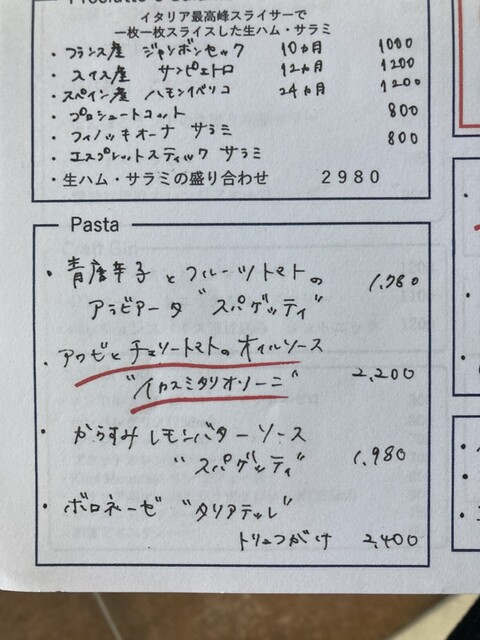 イタリア最高峰スライサーで
一枚一枚スライスした生ハム・サラミ
・フランス産 ジャンボンセック 10カ月 1000
・スイス産 サンピエトロ 12カ月 1200
・スペイン産 ハモンイベリコ 24カ月 1200
・プロシュートコット 800
・フィノッキオーナ サラミ 800
・エスプレットスティック サラミ
・生ハム・サラミの盛り合わせ 2980
Pasta
・青唐辛子とフルーツトマトの 1,780
アラビアータ "スパゲッティ"
・アワビとチェリートマトのオイルソース
"イカスミタリオリーニ" 2,200
・からすみレモンバターソース
"スパゲッティ" 1,980
・ボロネーゼ "タリアテッレ"
トリュフがけ 2,400